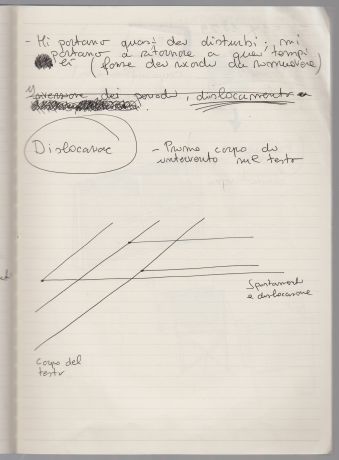 - Mi portano quasi dei disturbi; mi
portano a ritornare a quei tempi
(forse dei ricordi da rimuovere)
Inversione dei periodi, dislocamento
Dislocazione
- Primo corpo di
intervento sul testo
Spostamenti
e dislocazione
Corpo del
testo